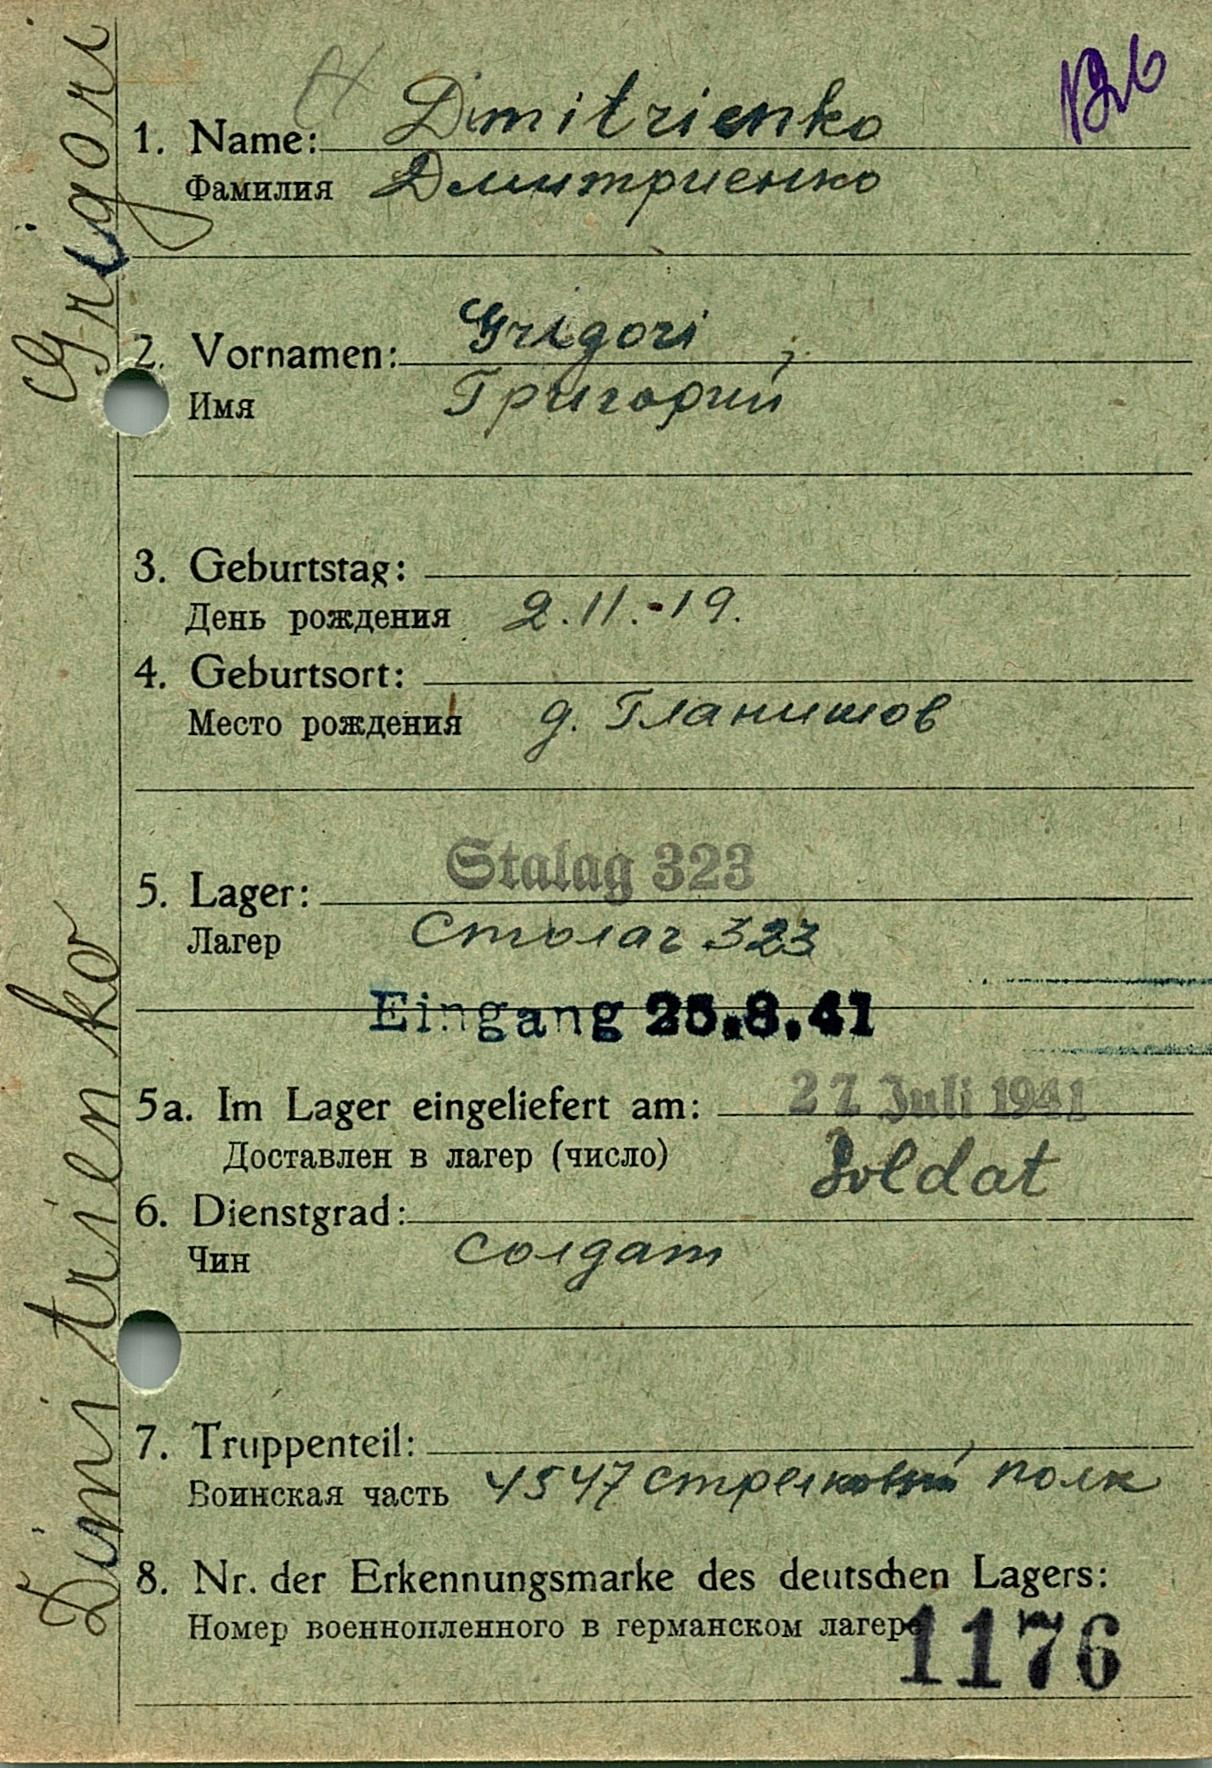 Grigori
Dimitrienko
1. Name: Dimitrienko
Фамилия Дмитриенко
2. Vornamen: Grigori
Имя Григорий
3. Geburtstag:
День рождения 2.11.-19.
4. Geburtsort:
Место рождения д. Гланишов
5. Lager: Stalag 323
Лагер Столаг 323
Eingang 25.8.41
5a. Im Lager eingeliefert am: 27 Juli 1941
Доставлен в лагер (число)
6. Dienstgrad: Soldat
Чин солдат
7. Truppenteil:
Воинская часть 4547 стрелковый полк
8. Nr. der Erkennungsmarke des deutschen Lagers:
Номер военнопленного в германском лагере
1176